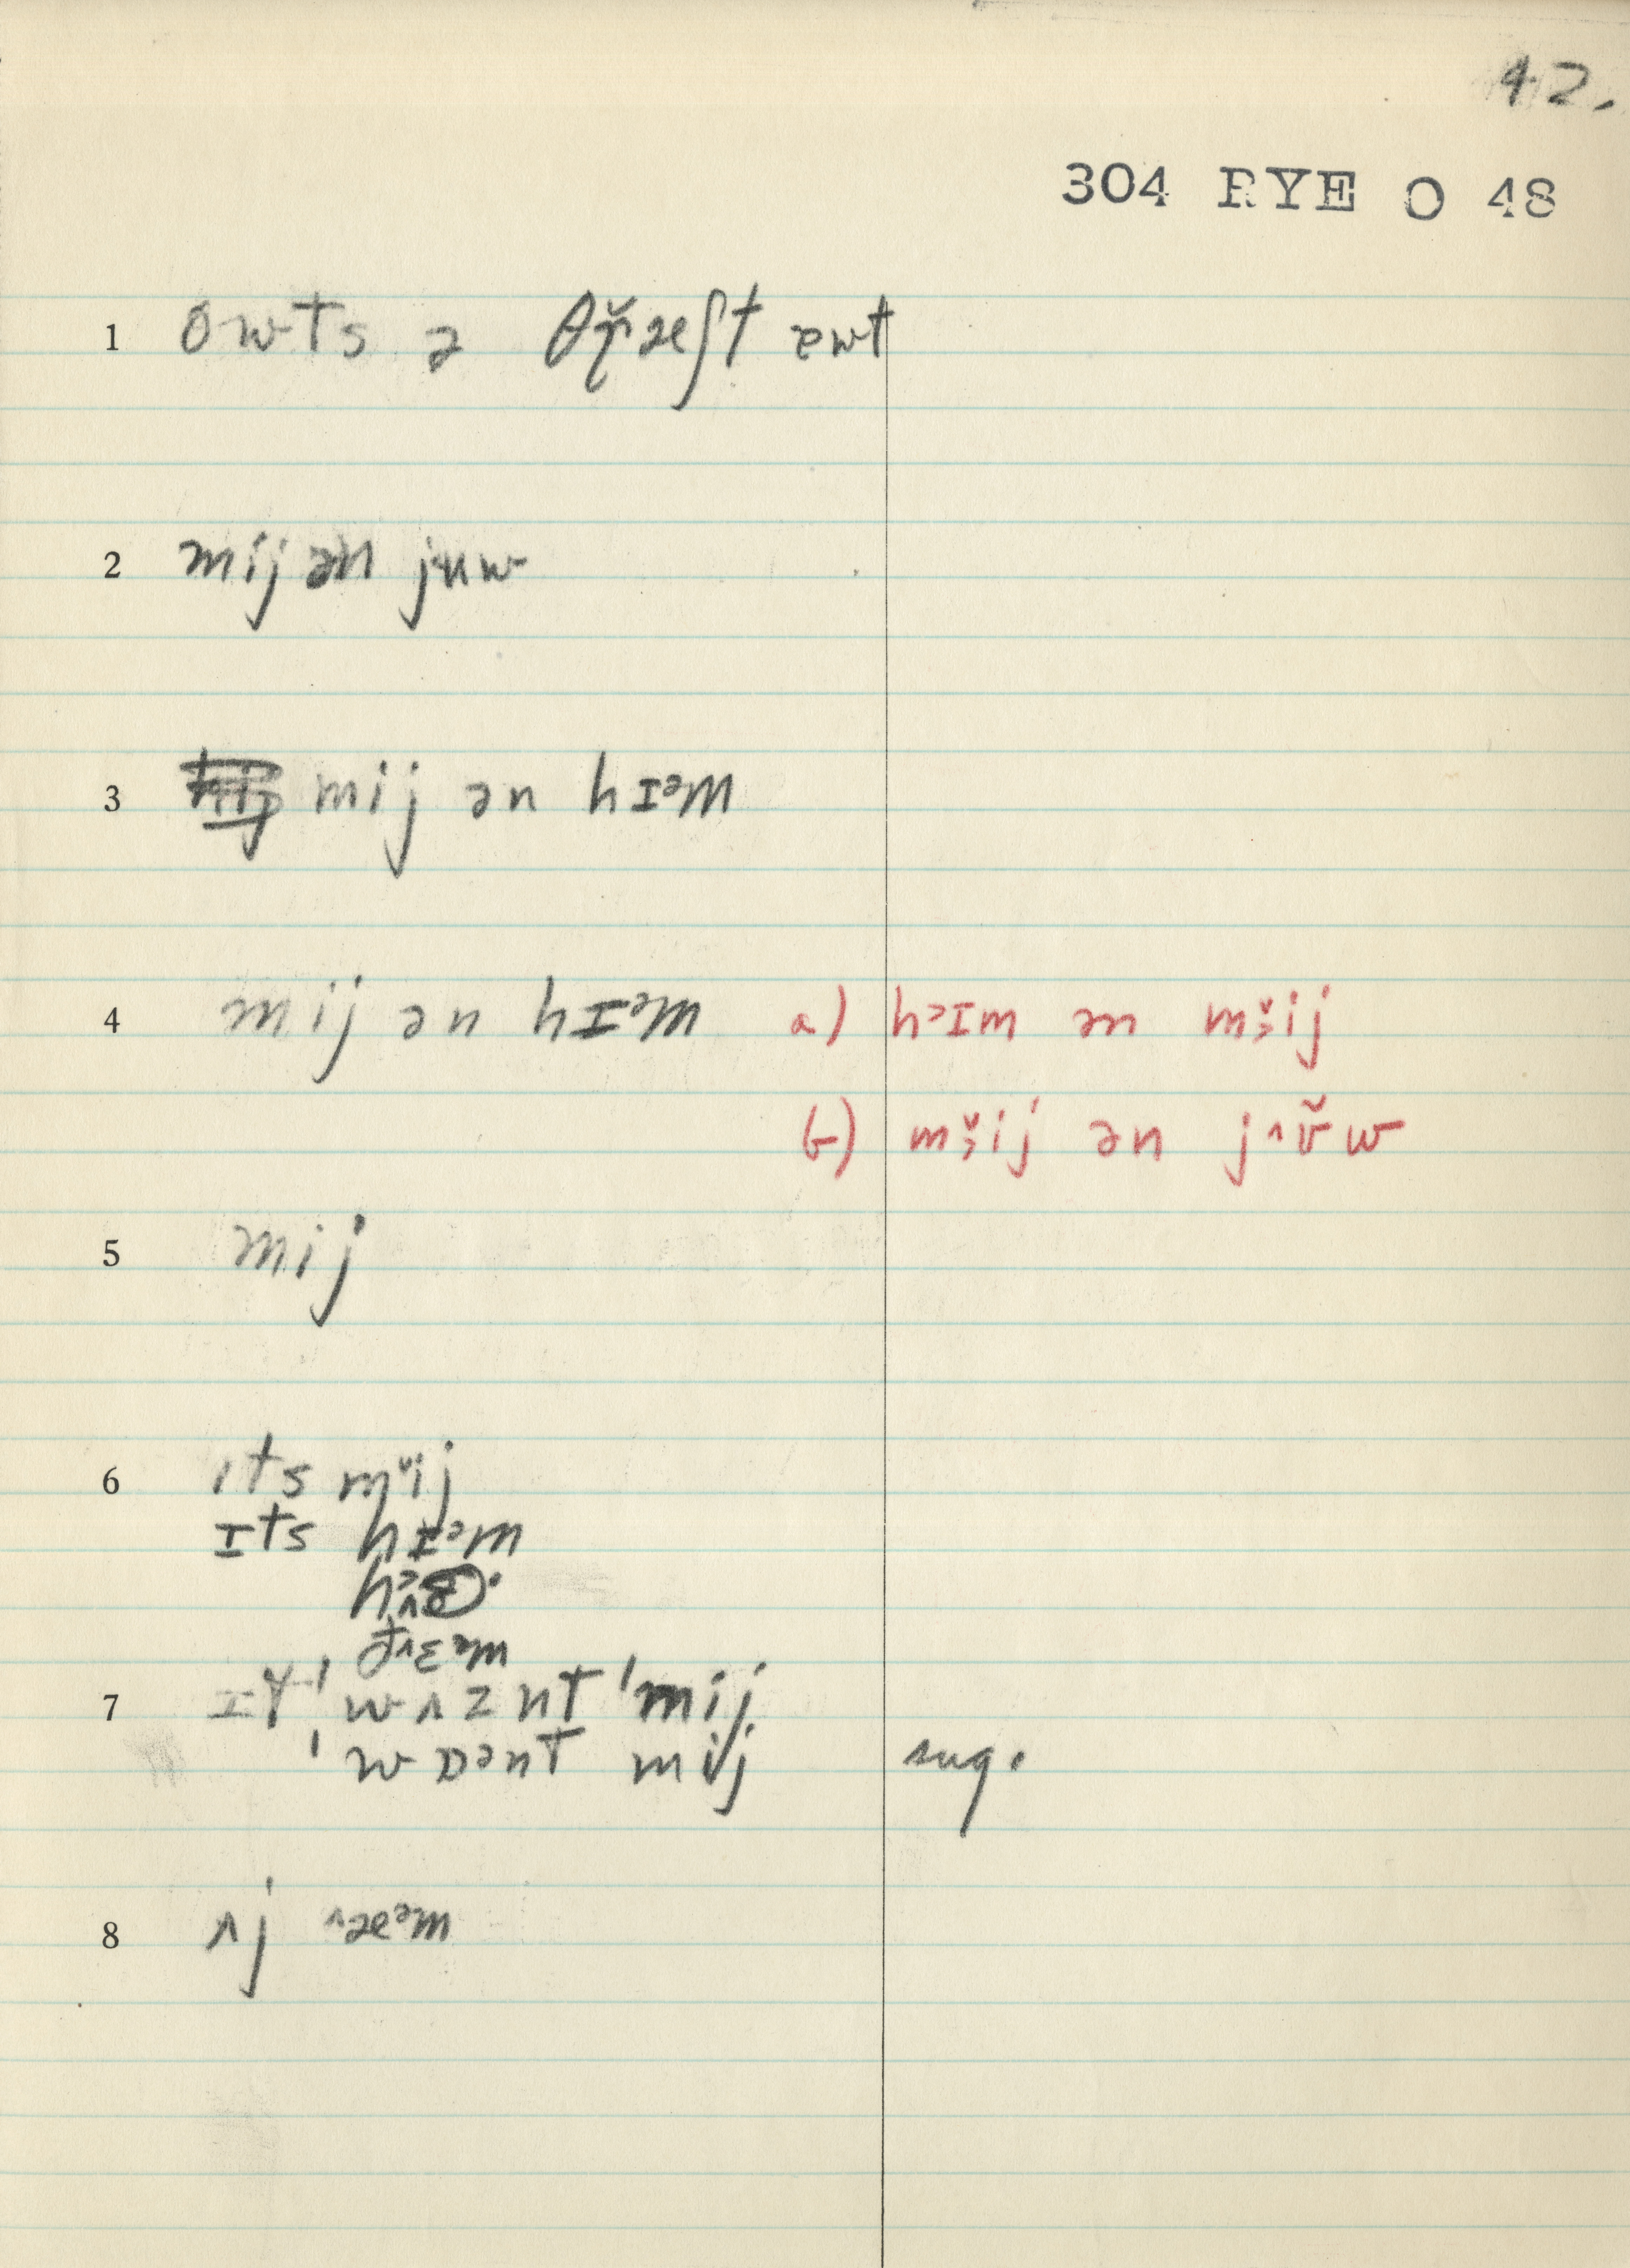 42.
304 RYE O 48
1 owts ə θř̥æʃt ɐwt
2 mij ən jʉw
3 mij ən hɪᵊm
4 mij ən hɪᵊm a) hᵊɪm ən mɨ̞̆ij
b) mɨ̞̆ij ən j^ʊ̆w
5 mij
6 ɪts mᵛij
ɪts hɪᵊm
ð^ɛᵊm
7 ɪt 'wʌznt 'mij
'wɒᵊnt mij sug.
8 ʌj ^æᵊm